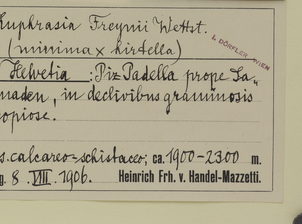 Euphrasia Freynii Wettst.
(minima x hirtella)
I. DÖRFLER WIEN
Helvetia: Piz Padella prope Sa-
maden, in declivibus graminosis
copiose.
s. calcareo-schistaceo; ca. 1900-2300 m.
g. 8. VIII. 1906. Heinrich Frh. v. Handel-Mazzetti.